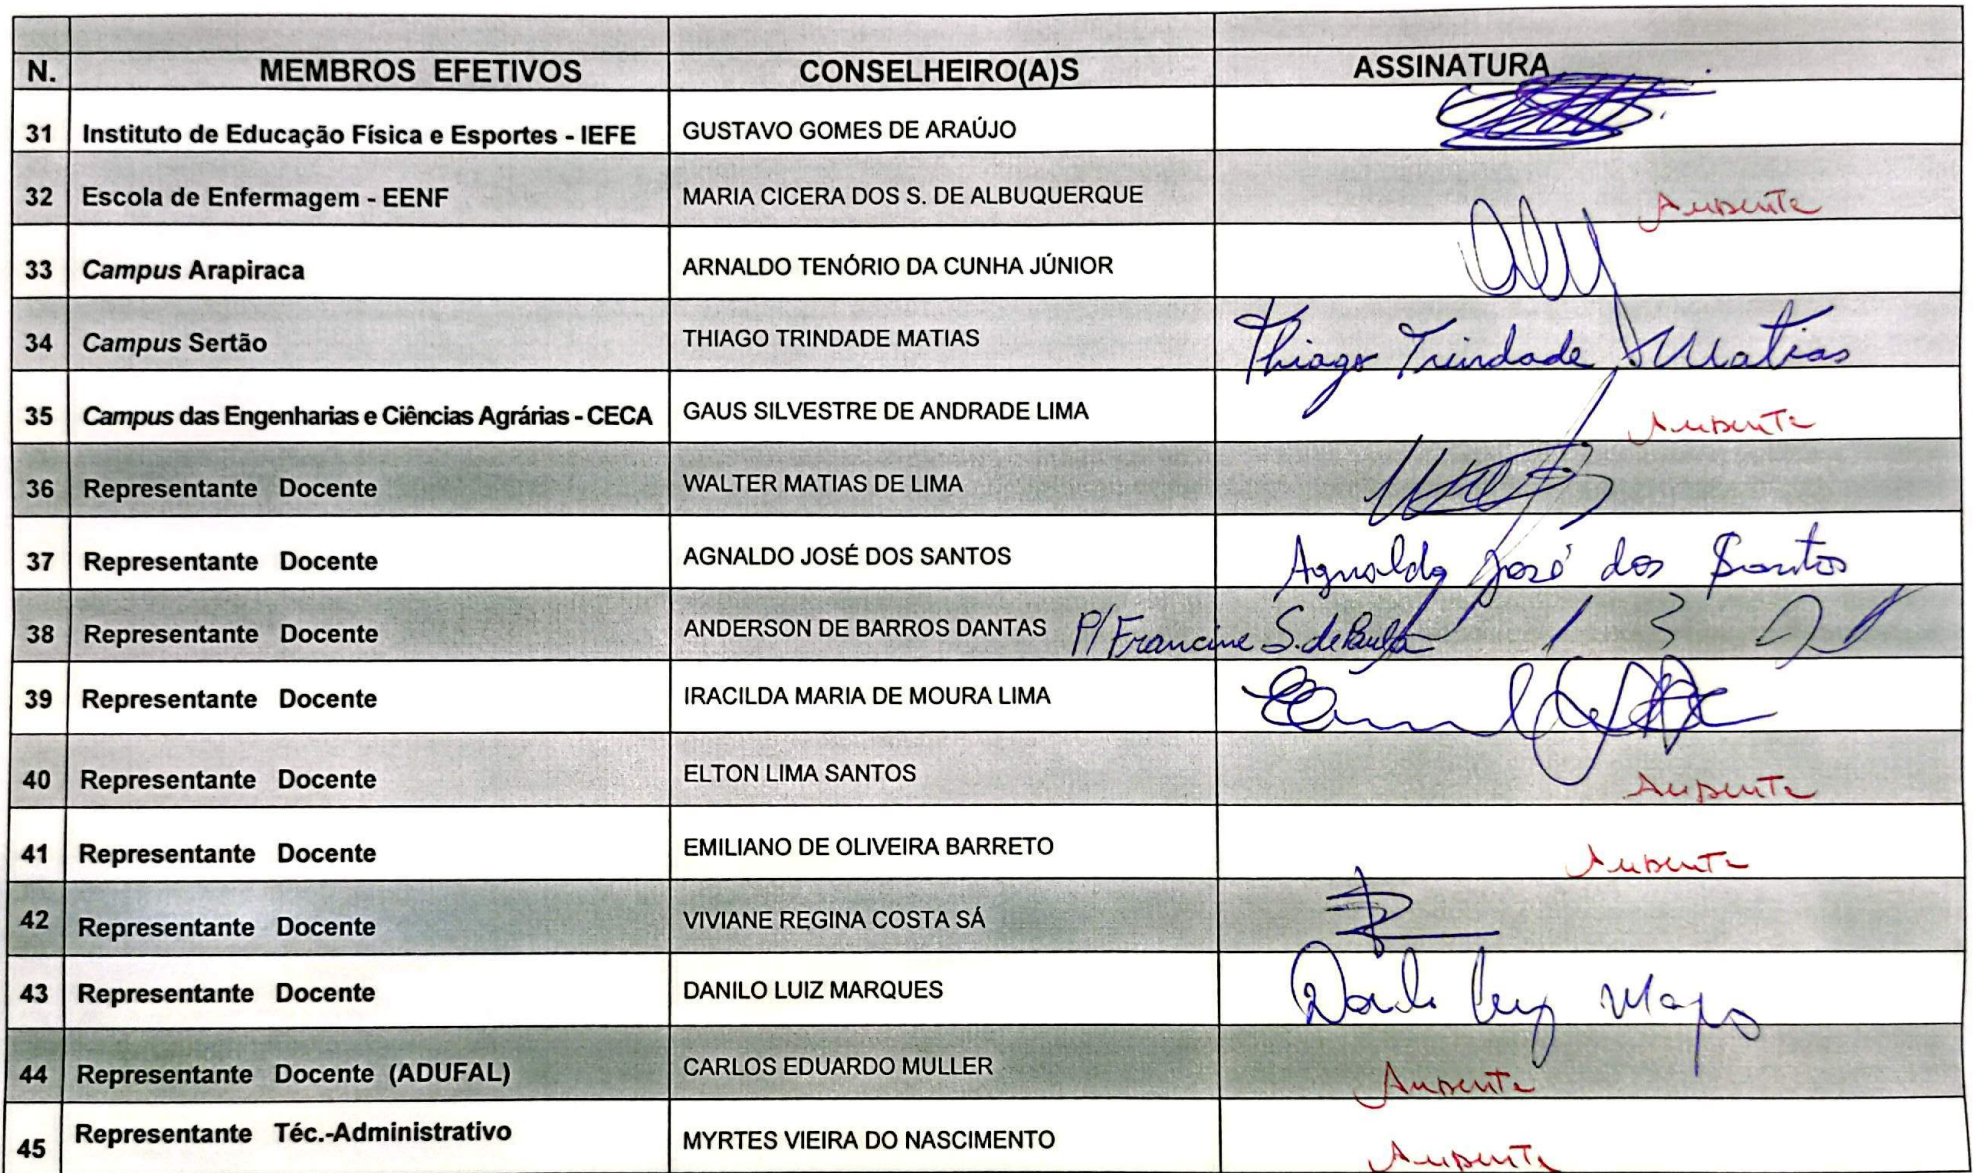 N. MEMBROS EFETIVOS CONSELHEIRO(A)S ASSINATURA
31 Instituto de Educação Física e Esportes - IEFE GUSTAVO GOMES DE ARAÚJO
32 Escola de Enfermagem - EENF MARIA CICERA DOS S. DE ALBUQUERQUE Ausente
33 Campus Arapiraca ARNALDO TENÓRIO DA CUNHA JÚNIOR
34 Campus Sertão THIAGO TRINDADE MATIAS Thiago Trindade Matias
35 Campus das Engenharias e Ciências Agrárias - CECA GAUS SILVESTRE DE ANDRADE LIMA Ausente
36 Representante Docente WALTER MATIAS DE LIMA
37 Representante Docente AGNALDO JOSÉ DOS SANTOS Agnaldo José dos Santos
38 Representante Docente ANDERSON DE BARROS DANTAS P/ Francine S. de Paula
39 Representante Docente IRACILDA MARIA DE MOURA LIMA
40 Representante Docente ELTON LIMA SANTOS Ausente
41 Representante Docente EMILIANO DE OLIVEIRA BARRETO Ausente
42 Representante Docente VIVIANE REGINA COSTA SÁ
43 Representante Docente DANILO LUIZ MARQUES Danilo Luiz Marques
44 Representante Docente (ADUFAL) CARLOS EDUARDO MULLER Ausente
45 Representante Téc.-Administrativo MYRTES VIEIRA DO NASCIMENTO Ausente